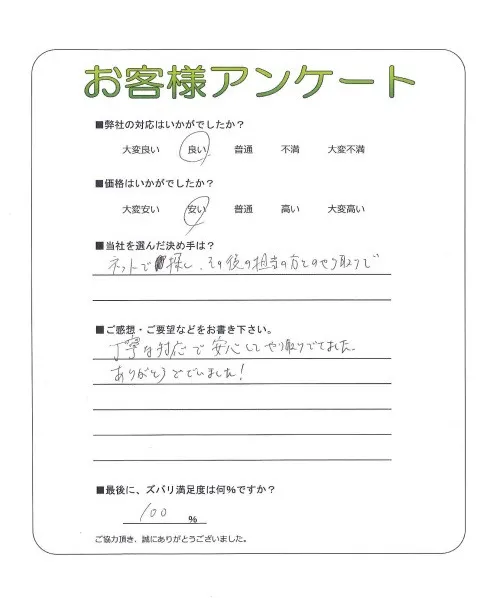 お客様アンケート
■弊社の対応はいかがでしたか？
大変良い 良い 普通 不満 大変不満
■価格はいかがでしたか？
大変安い 安い 普通 高い 大変高い
■当社を選んだ決め手は？
ネットで探し、その後の担当の方とのやり取りで
■ご感想・ご要望などをお書き下さい。
丁寧な対応で安心してやり取りできました。
ありがとうございました！
■最後に、ズバリ満足度は何％ですか？
100 ％
ご協力頂き、誠にありがとうございました。